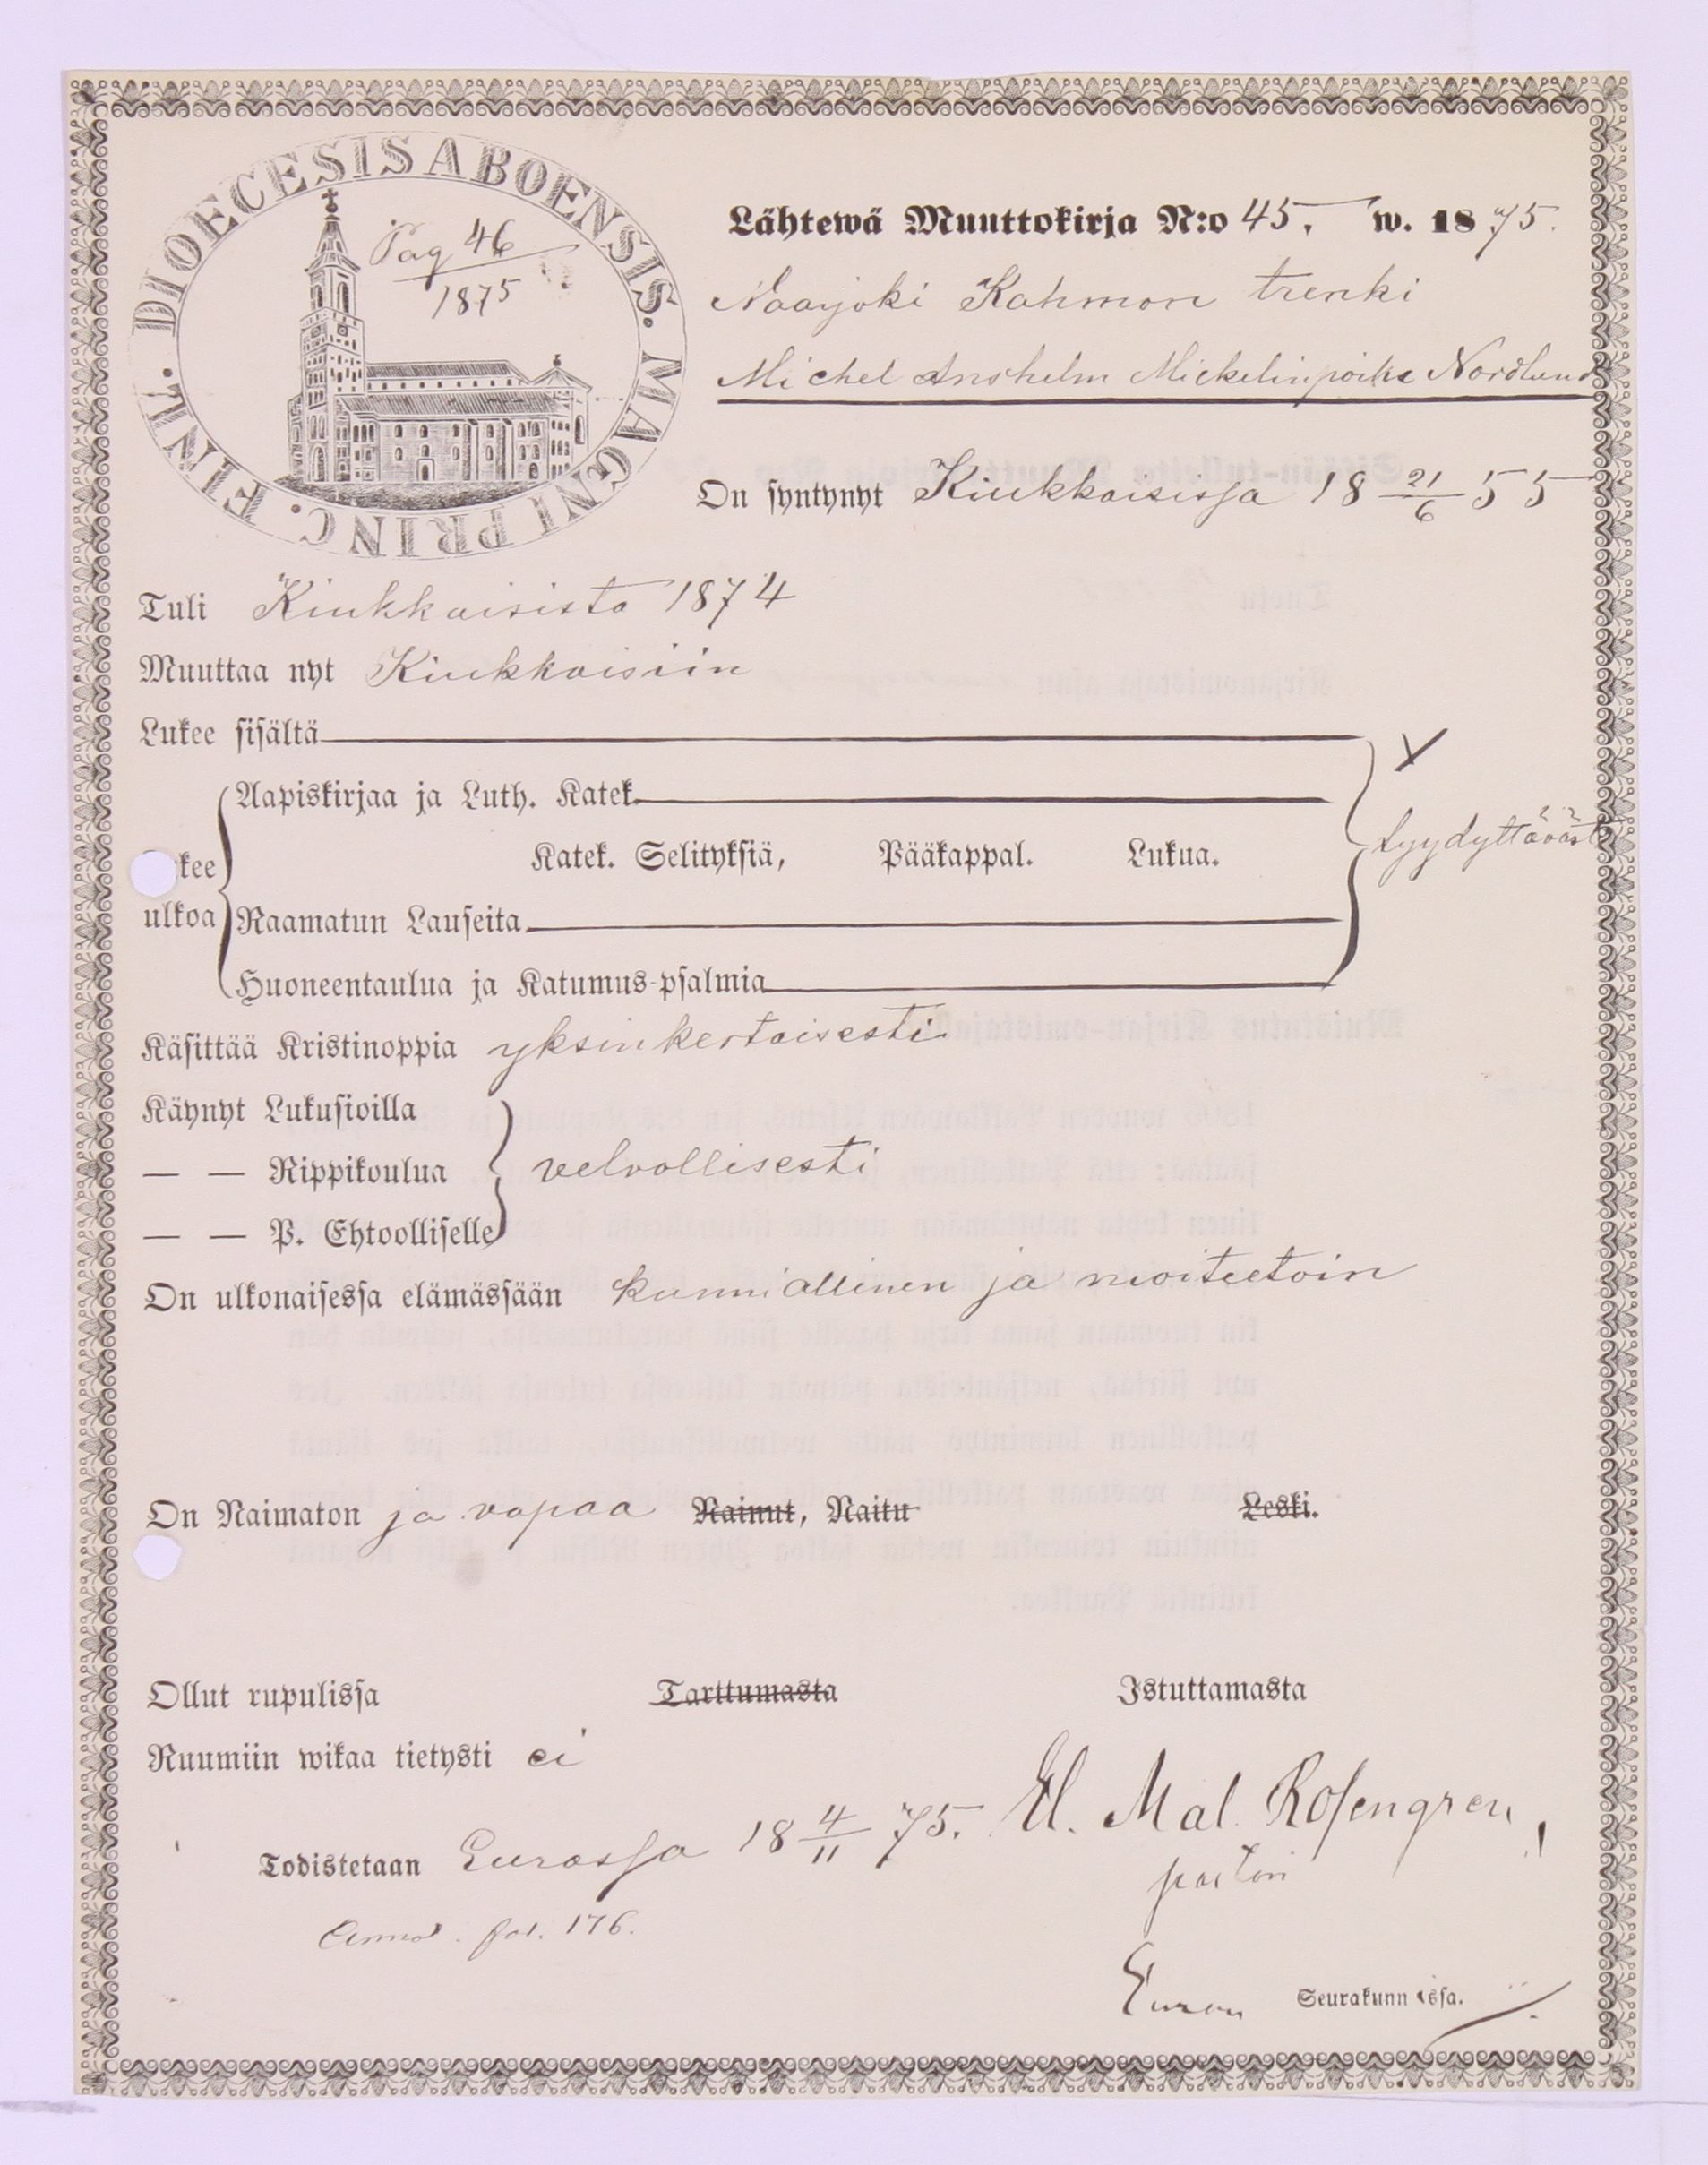 DIOECESIS ABOENSIS. MAGNI PRINC. FINL.
Pag 46
1875
Lähtewä Muuttokirja N:o 45. w. 1875.
Naarjoki Kahmon trenki
Michel Anshelm Mickelinpoika Nordlund
On syntynyt Kiukkaisissa 18 21/6 55
Tuli Kiukkaisista 1874
Muuttaa nyt Kiukkaisiin
Lukee sisältä
Aapiskirjaa ja Luth. Katek.
tyydyttäväst
Katek. Selityksiä, Pääkappal. Lukua.
kee
ulkoa
Raamatun Lauseita
Huoneentaulua ja Katumus-psalmia
Käsittää Kristinoppia yksinkertaisesti
Käynyt Lukusioilla
— — Rippikoulua velvollisesti
— — P. Ehtoolliselle
On ulkonaisessa elämässään kunniallinen ja moiteetoin
On Naimaton ja vapaa Nainut, Naitu Leski.
Ollut rupulissa Tarttumasta Istuttamasta
Ruumiin wikaa tietysti ei
Todistetaan Eurassa 18 4/11 75. El. Mal. Rosengren,
pastori
fol. 176.
Euran Seurakunnassa.